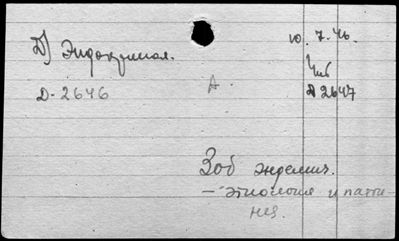 Б) Эндокринол.
10. 7. 46.
Д-2646
А.
Д 2647
Зоб эндемич.
- этиология и пато-
нез.